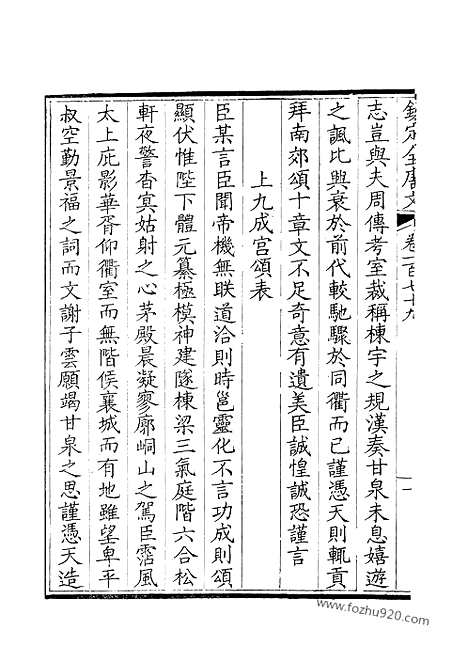 欽定全唐文 卷一百七十九 一
志豈與夫周傳考室裁稱棟宇之規漢奏甘泉未息嬉遊
之諷比興衰於前代較馳驟於同衢而已謹憑天則輒貢
拜南郊頌十章文不足奇意有遺美臣誠惶誠恐謹言
上九成宮頌表
臣某言臣聞帝機無联道洽則時邕靈化不言功成則頌
顯伏惟陛下體元纂極模神建隧棟梁三氣庭階六合松
軒夜警杳冥姑射之心茅殿晨凝寥廓峒山之駕臣霑風
太上庇影華胥仰衢室而無階候襄城而有地雖望卑平
叔空勤景福之詞而文謝子雲願竭甘泉之思謹憑天造
www.fozhu920.com